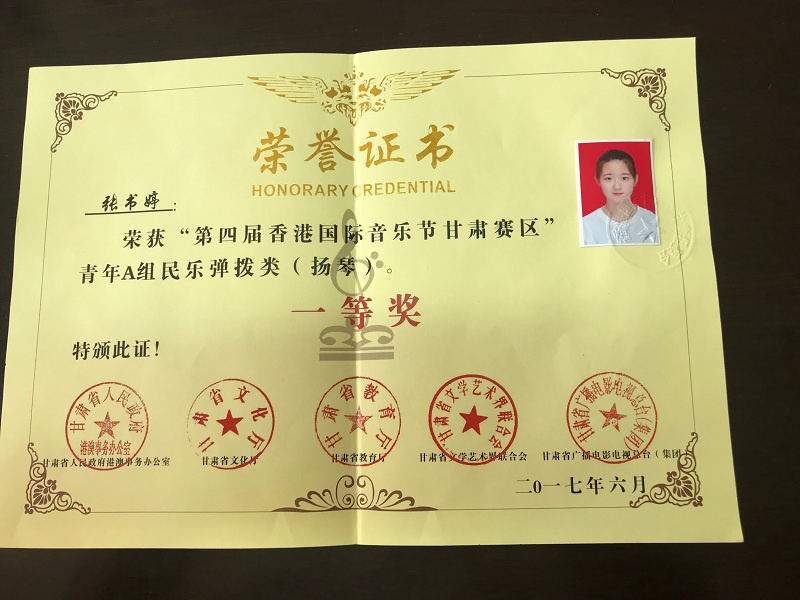 荣誉证书
HONORARY CREDENTIAL
张书婷：
荣获“第四届香港国际音乐节甘肃赛区”
青年A组民乐弹拨类（扬琴）。
一等奖
特颁此证！
甘肃省人民政府
港澳事务办公室
甘肃省文化厅
甘肃省教育厅
甘肃省文学艺术界联合会
甘肃省广播电影电视总台(集团)
甘肃省人民政府港澳事务办公室
甘肃省文化厅
甘肃省教育厅
甘肃省文学艺术界联合会
甘肃省广播电影电视总台（集团）
二〇一七年六月